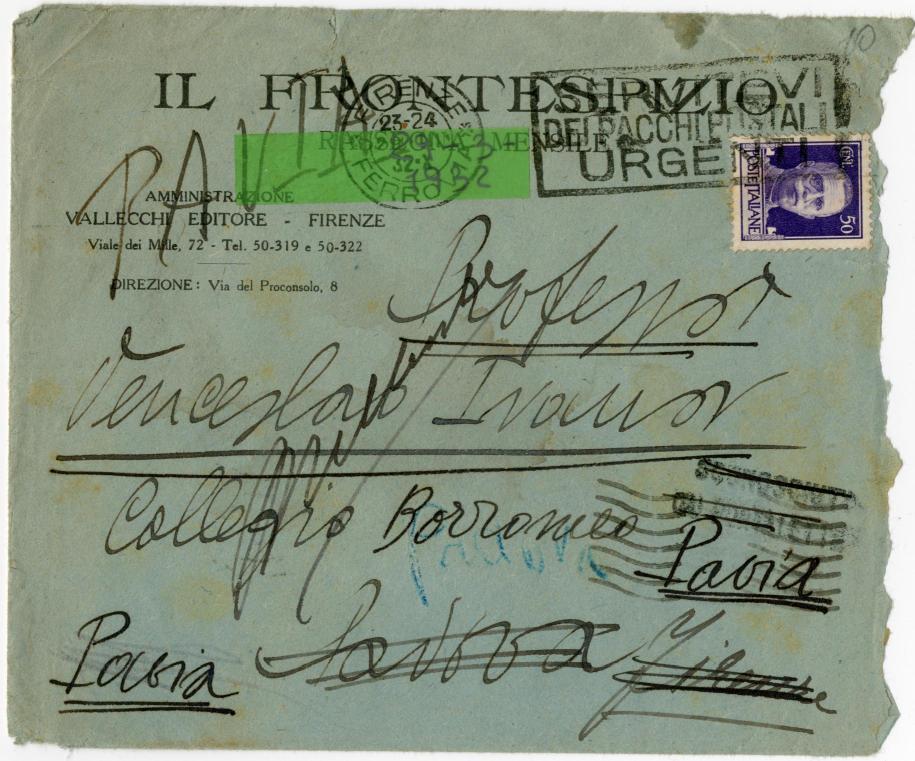 10
IL FRONTESPIZIO
RASSEGNA MENSILE
FIRENZE
23-24
FERROVIA
SERVITEVI
DEI PACCHI POSTALI
URGENTI
POSTE ITALIANE
CENT. 50
PAVIA
AMMINISTRAZIONE
VALLECCHI EDITORE - FIRENZE
Viale dei Mille, 72 - Tel. 50-319 e 50-322
DIREZIONE: Via del Proconsolo, 8
Professor
Venceslao Ivanov
Collegio Borromeo
Padova
Pavia
Pavia
Padova
Firenze